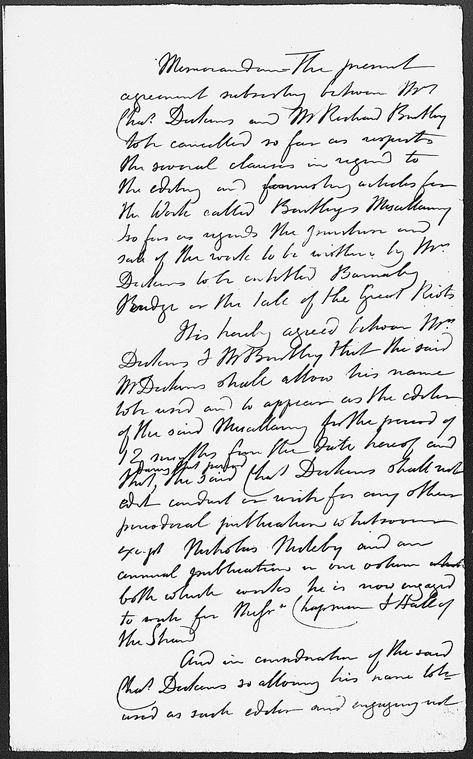 Memorandum – The present
agreement subsisting between Mr.
Chas. Dickens and Mr Richard Bentley
to be cancelled so far as respects
the several clauses in regard to
the editing and furnishing articles for
the Work called Bentleys Miscellany
so far as regards the purchase and
sale of the work to be written by Mr.
Dickens to be entitled Barnaby
Rudge or the tale of the Great Riots
It is hereby agreed between Mr.
Dickens & Mr Bentley that the said
Mr Dickens shall allow his name
to be used and to appear as the editor
of the said Miscellany for the period of
12 months from the date hereof and
during that period
that, the said Chas. Dickens shall not
edit conduct or write for any other
periodical publication whatsoever
except Nicholas Nickleby and an
annual publication in one volume
both which works he is now engaged
to write for Messrs Chapman & Hall of
the Strand
And in consideration of the said
Chas. Dickens so allowing his name to be
used as such editor and engaging not